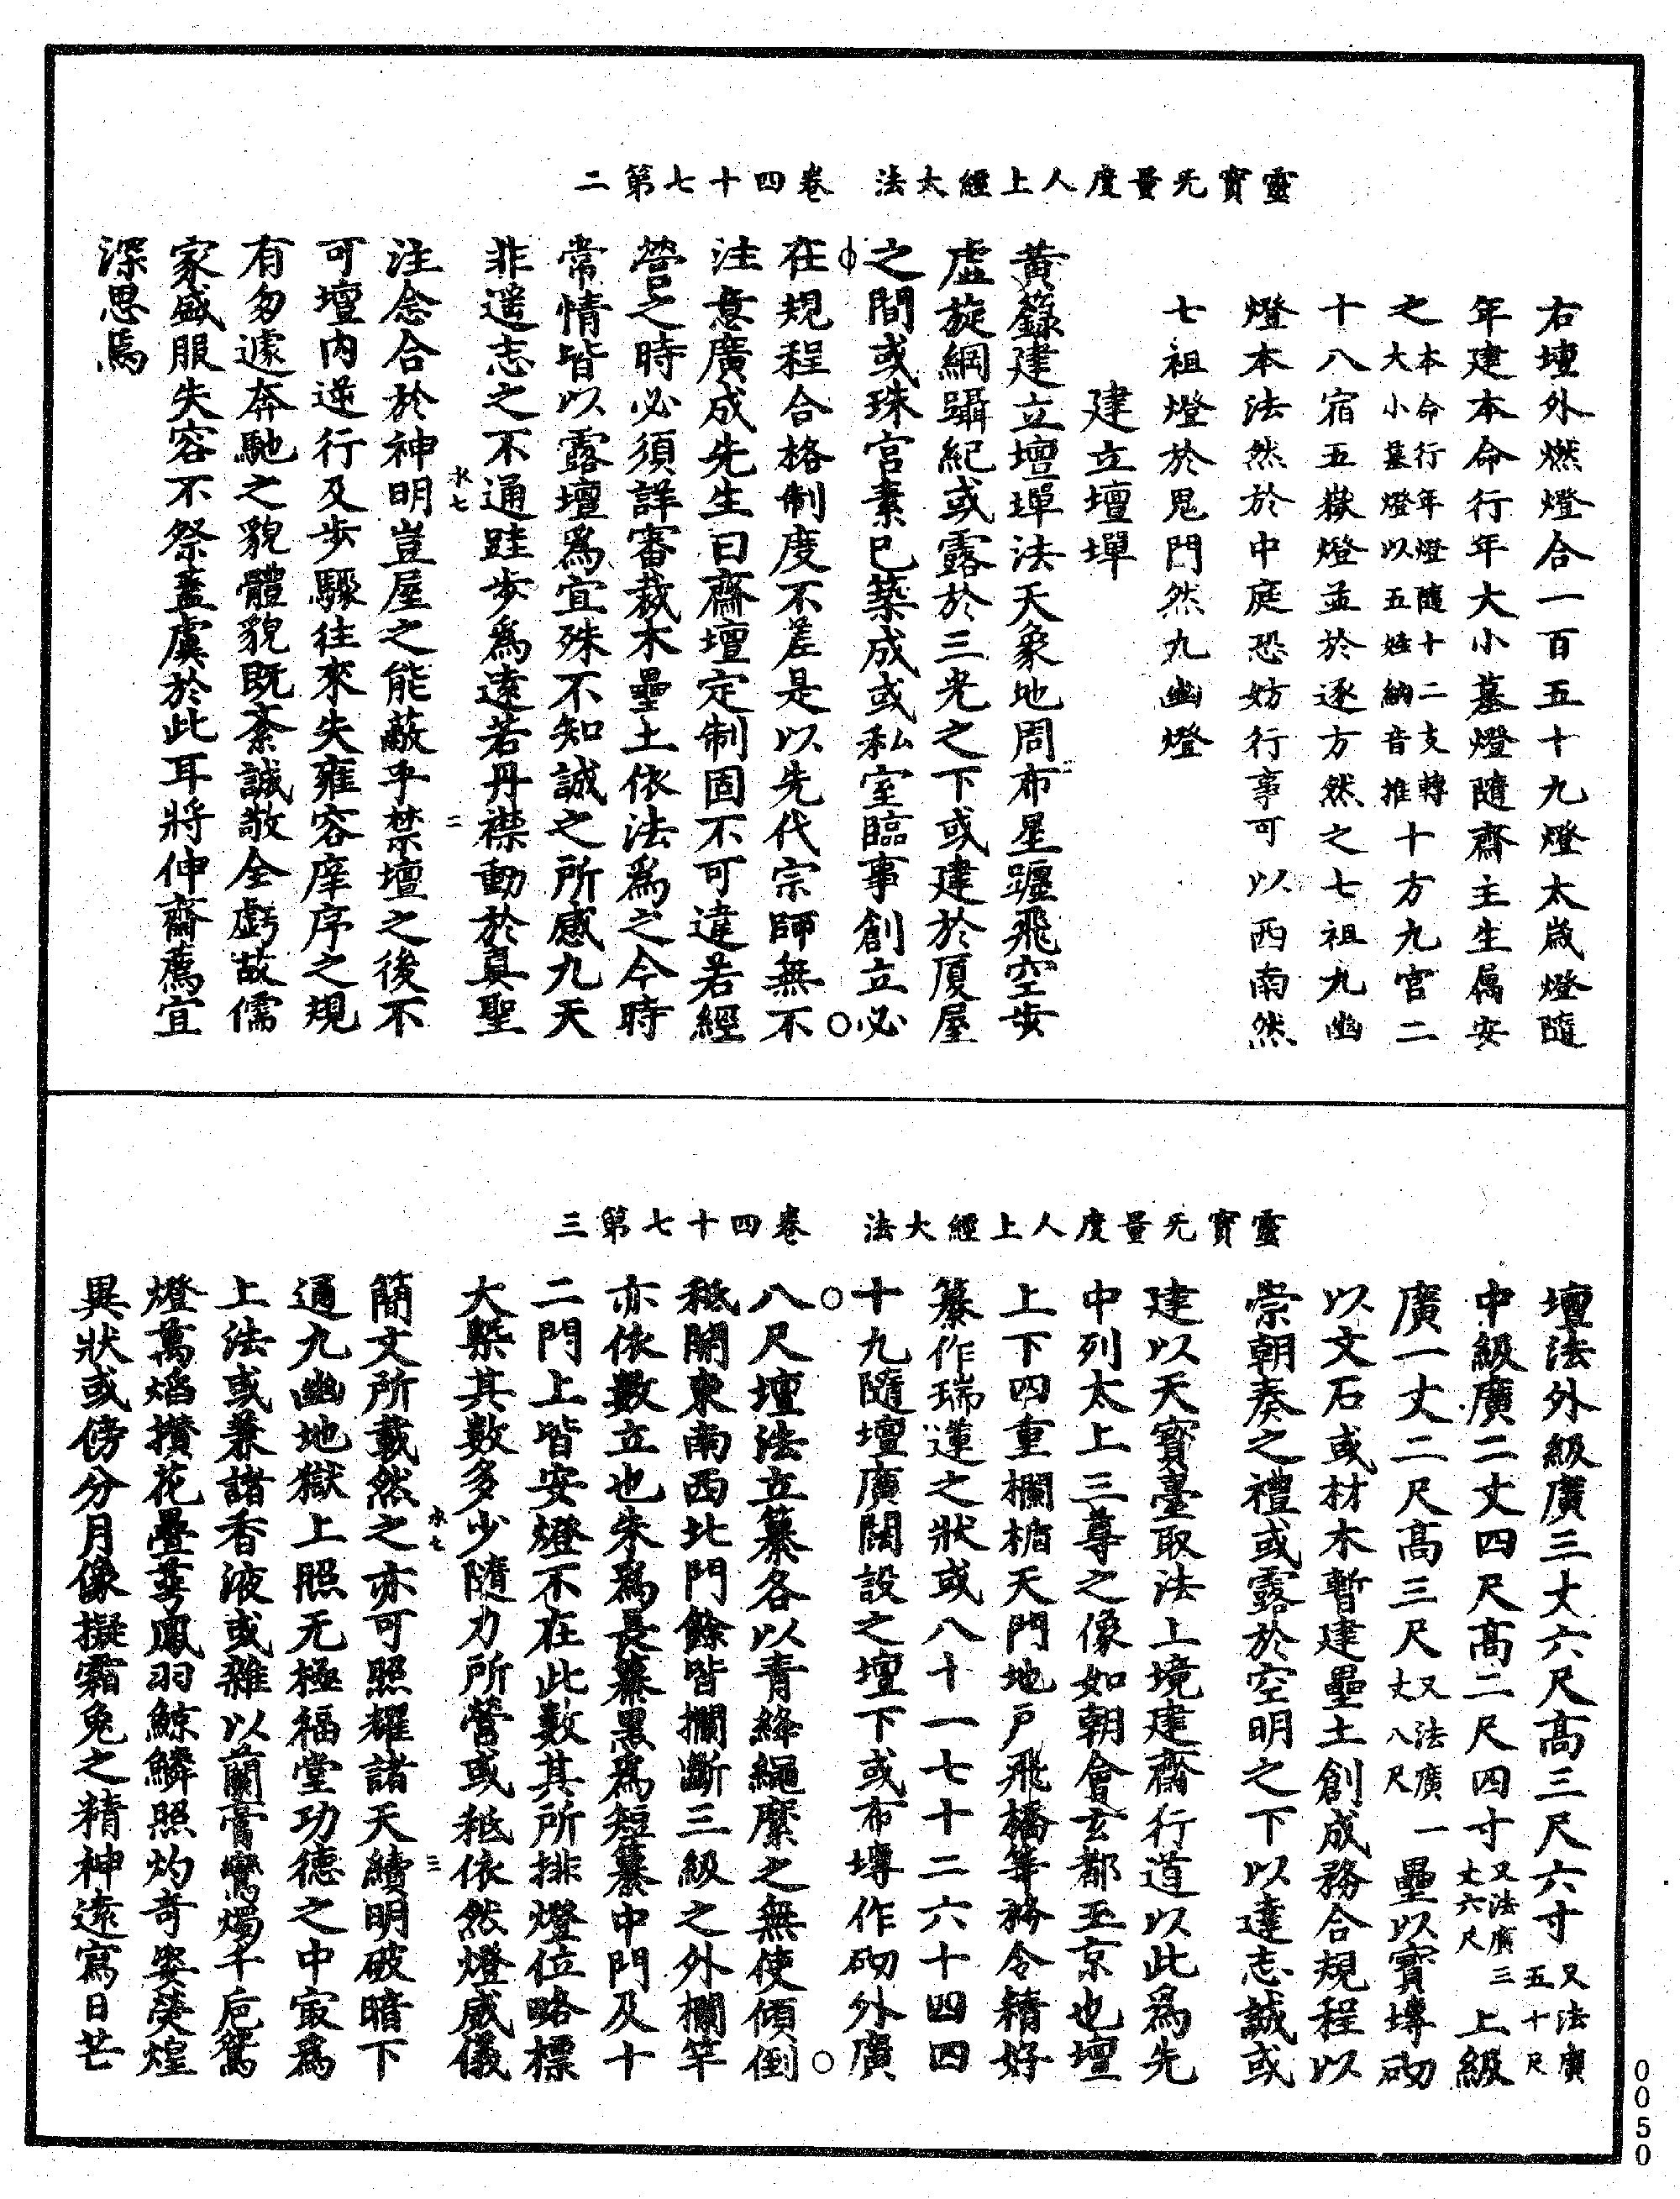 靈寶无量度人上經大法　卷四十七第二
右壇外燃燈合一百五十九燈太歲燈隨
年建本命行年大小墓燈隨齋主生屬安
之本命行年燈隨十二支轉大小墓燈以五姓納音推十方九宮二
十八宿五嶽燈並於逐方然之七祖九幽
燈本法然於中庭恐妨行事可以西南然
七祖燈於鬼門然九幽燈
建立壇墠
黃籙建立壇墠法天象地周布星躔飛空步
虛旋綱躡紀或露於三光之下或建於厦屋
之間或珠宮素已築成或私室臨事創立必
在規程合格制度不差是以先代宗師無不
注意廣成先生曰齋壇定制固不可違若經
營之時必須詳審裁木壘土依法爲之今時
常情皆以露壇爲宜殊不知誠之所感九天
非遥志之不通跬步爲遠若丹襟動於真聖
水七
二
注念合於神明豈屋之能蔽乎禁壇之後不
可壇內逆行及步驟往來失雍容庠序之規
有匆遽奔馳之貌體貌既紊誠敬全虧故儒
家盛服失容不祭蓋虞於此耳將伸齋薦宜
深思焉
靈寶无量度人上經大法　卷四十七第三
壇法外級廣三丈六尺高三尺六寸又法廣五十尺
中級廣二丈四尺高二尺四寸又法廣三丈六尺上級
廣一丈二尺高三尺又法廣一丈八尺壘以寶塼砌
以文石或材木暫建壘土創成務合規程以
崇朝奏之禮或露於空明之下以達志誠或
建以天寶臺取法上境建齋行道以此爲先
中列太上三尊之像如朝會玄都玉京也壇
上下四重欄楯天門地戶飛橋等務令精好
纂作瑞蓮之狀或八十一七十二六十四四
十九隨壇廣闊設之壇下或布塼作砌外廣
八尺壇法立纂各以青絳繩縻之無使傾倒
秪開東南西北門餘皆攔斷三級之外欄竿
亦依數立也朱爲長纂黑爲短纂中門及十
二門上皆安燈不在此數其所排燈位略標
大槩其數多少隨力所營或秪依然燈威儀
水七
三
簡文所載然之亦可照耀諸天續明破暗下
通九幽地獄上照无極福堂功德之中㝡爲
上法或兼諸香液或雜以蘭膏鸞燭千巵鴛
燈萬焰攢花疊萼鳳羽鯨鱗照灼奇姿熒煌
異狀或傍分月像擬霜兔之精神遠寫日芒
0050